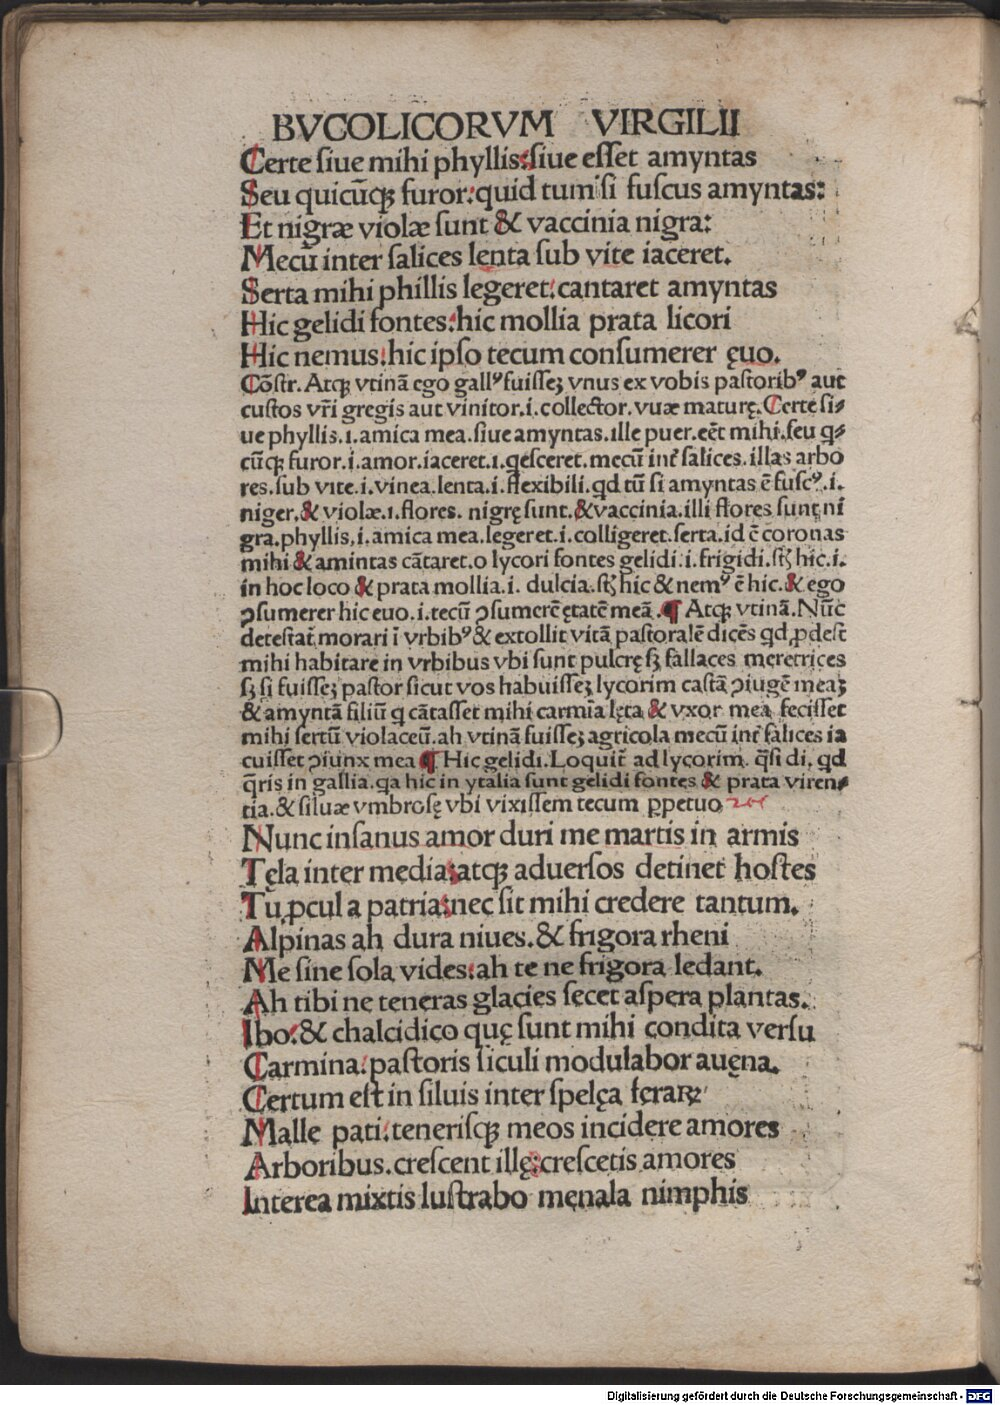 BVCOLICORVM VIRGILII
Certe ſiue mihi phyllis: ſiue eſſet amyntas
Seu quicūqꝫ furor: quid tum ſi fuſcus amyntas:
Et nigræ violæ ſunt & vaccinia nigra:
Mecū inter ſalices lenta ſub vite iaceret.
Serta mihi phillis legeret: cantaret amyntas
Hic gelidi fontes: hic mollia prata licori
Hic nemus: hic ipſo tecum conſumerer ęuo.
Cōſtr. Atqꝫ vtinā ego gallꝰ fuiſſeꝫ vnus ex vobis paſtoribꝰ aut
cuſtos vr̄i gregis aut vinitor.i.collector.vuæ maturę.Certe ſi⸗
ue phyllis.ı.amica mea.ſiue amyntas.ille puer.eēt mihi.ſeu q⸗
cūqꝫ furor.i.amor.iaceret.ı.qeſceret.mecū int̄ ſalices.illas arbo
res.ſub vite.i.vinea.lenta.i.flexibili.qd tū ſi amyntas ē fuſcꝰ.i.
niger.& violæ.ı.flores. nigrę ſunt.& vaccinia.illi flores ſunt ni
gra.phyllis.i.amica mea.legeret.i.colligeret.ſerta.id ē coronas
mihi & amintas cātaret.o lycori fontes gelidi.i.frigidi.ſtꝫ hic.i.
in hoc loco & prata mollia.i. dulcia.ſtꝫ hic & nemꝰ ē hic.& ego
ꝯſumerer hic euo.i.tecū ꝯſumerē ętatē meā.¶ Atqꝫ vtinā.Nūc
deteſtat̄ morari ī vrbibꝰ & extollit vitā paſtoralē dicēs qd ꝓdeſt
mihi habitare in vrbibus vbi ſunt pulcrę ſꝫ fallaces meretrices
ſꝫ ſi fuiſſeꝫ paſtor ſicut vos habuiſſeꝫ lycorim caſtā ꝯiugē meaꝫ
& amyntā filiū q cātaſſet mihi carmīa lęta & vxor mea feciſſet
mihi ſertū violaceū.ah vtinā fuiſſeꝫ agricola mecū int̄ ſalices ia
cuiſſet ꝯiunx mea ¶ Hic gelidi.Loquit̄ ad lycorim. q̄ſi di. qd
q̄ris in gallia.qa hic in ytalia ſunt gelidi fontes & prata viren⸗
tia.& ſiluæ vmbroſę vbi vixiſſem tecum ꝑpetuo
Nunc inſanus amor duri me martis in armis
Tęla inter media: atqꝫ aduerſos detinet hoſtes
Tu ꝓcul a patria: nec ſit mihi credere tantum.
Alpinas ah dura niues.& frigora rheni
Me ſine ſola vides: ah te ne frigora ledant.
Ah tibi ne teneras glacies ſecet aſpera plantas.
Ibo: & chalcidico quę ſunt mihi condita verſu
Carmina: paſtoris ſiculi modulabor auęna.
Certum eſt in ſiluis inter ſpelęa feraꝝ
Malle pati: teneriſqꝫ meos incidere amores
Arboribus.creſcent illę: creſcetis amores
Interea mixtis luſtrabo męnala nimphis
Digitalisierung gefördert durch die Deutsche Forschungsgemeinschaft - DFG